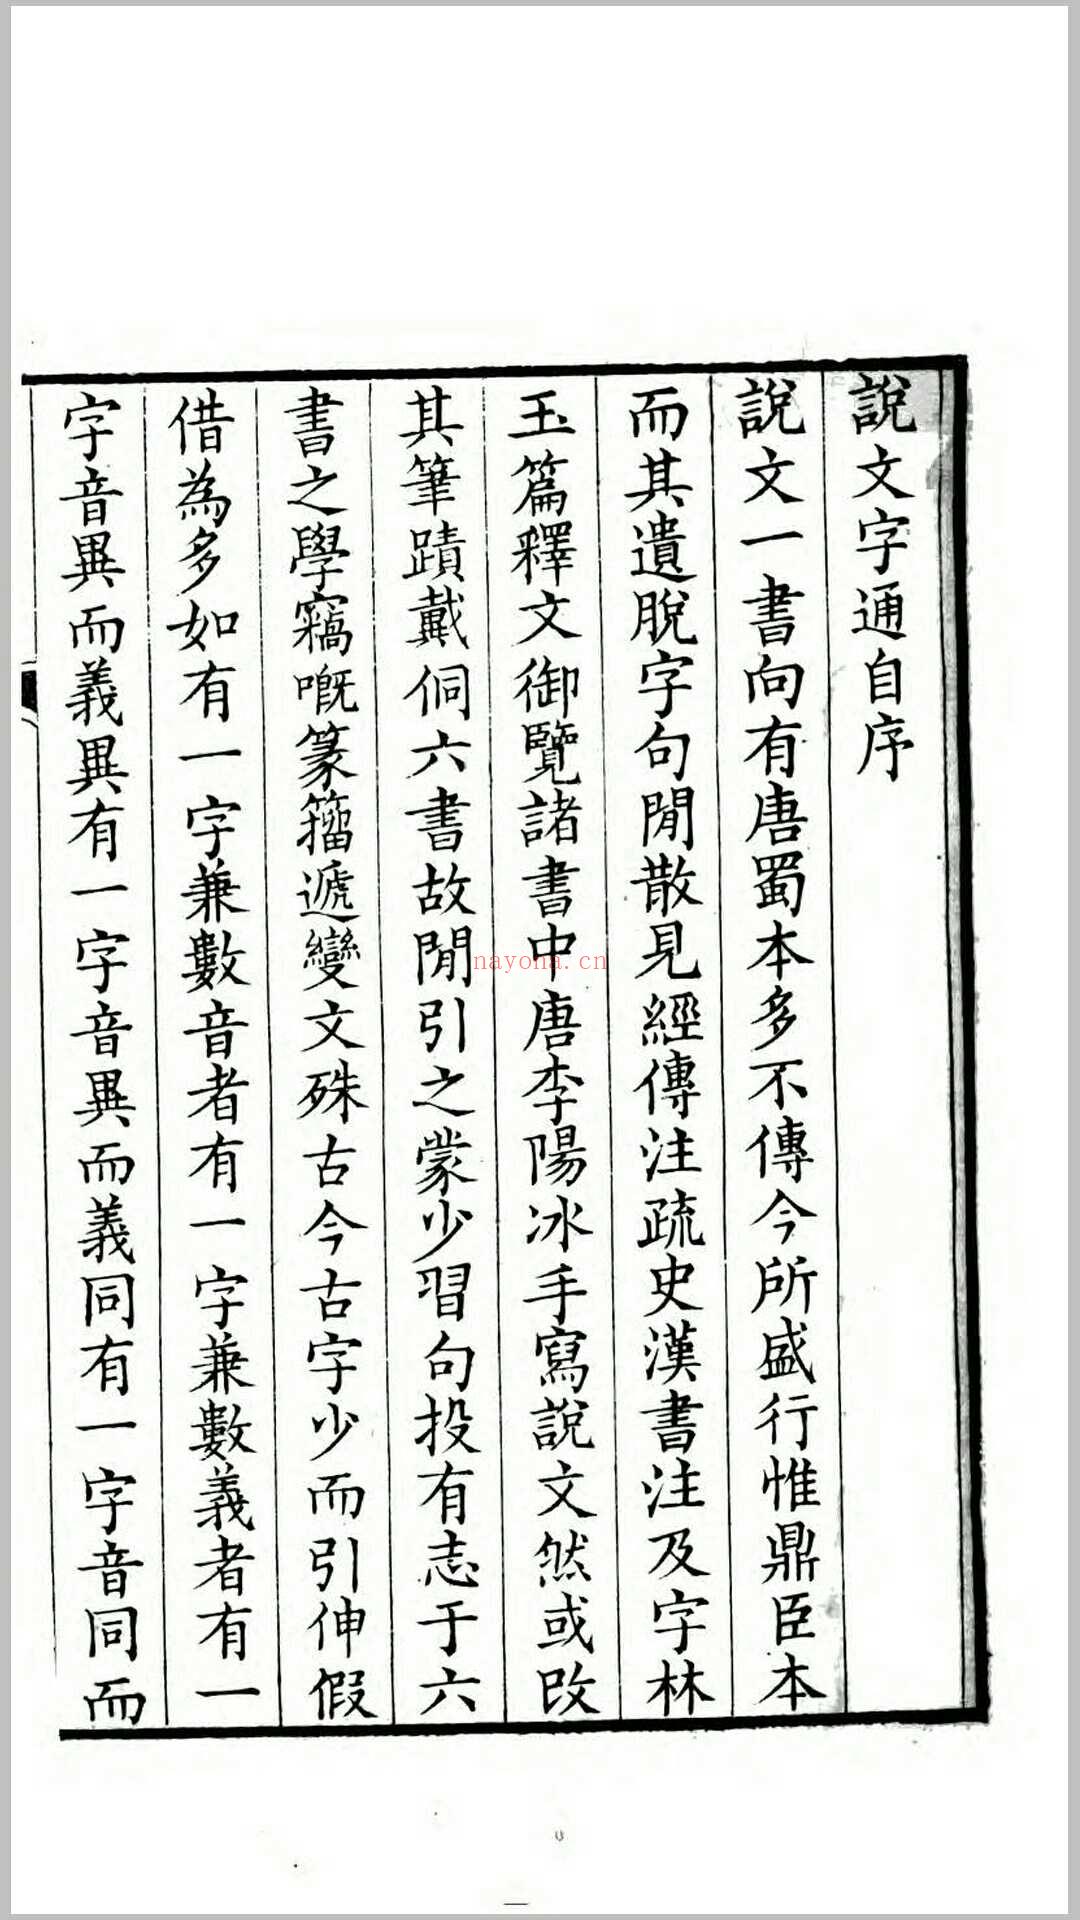 說文字通自序
說文一書向有唐蜀本多不傳今所盛行惟鼎臣本
而其遺脫字句閒散見經傳注疏史漢書注及字林
玉篇釋文御覽諸書中唐李陽冰手寫說文然或改
其筆蹟戴侗六書故閒引之蒙少習句投有志于六
書之學竊嘅篆籀遞變文殊古今古字少而引伸假
借為多如有一字兼數音者有一字兼數義者有一
字音異而義異有一字音異而義同有一字音同而
nayona.cn
一